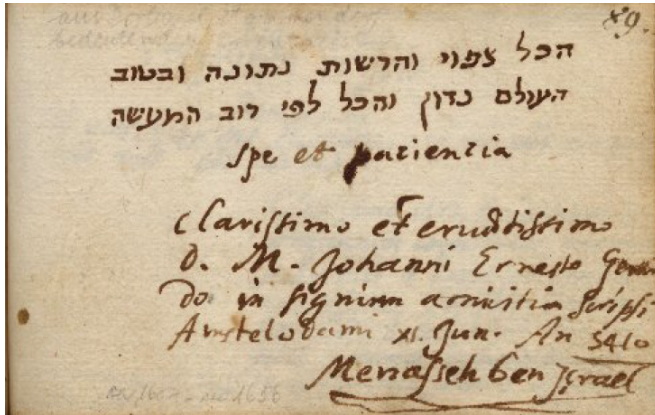 89.
הכל צפוי והרשות נתונה ובטוב
העולם נדון והכל לפי רוב המעשה
Spe et patientia
Clarissimo et eruditissimo
D. M. Johanni Ernesto Gerar
do in signum amicitia scripsi
Amstelodami XI. Jun. An 5410
Menasseh ben Israel